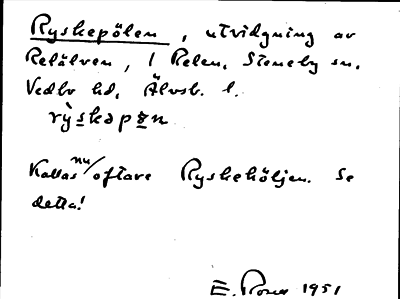 Ryskepölen, utvidgning av
Relälven, i Relen, Steneby sn,
Vedbo hd, Älvsb. l.
rỳskapɷn
Kallas nu/oftare Ryskehöljen. Se
detta!
E. Rosell 1951